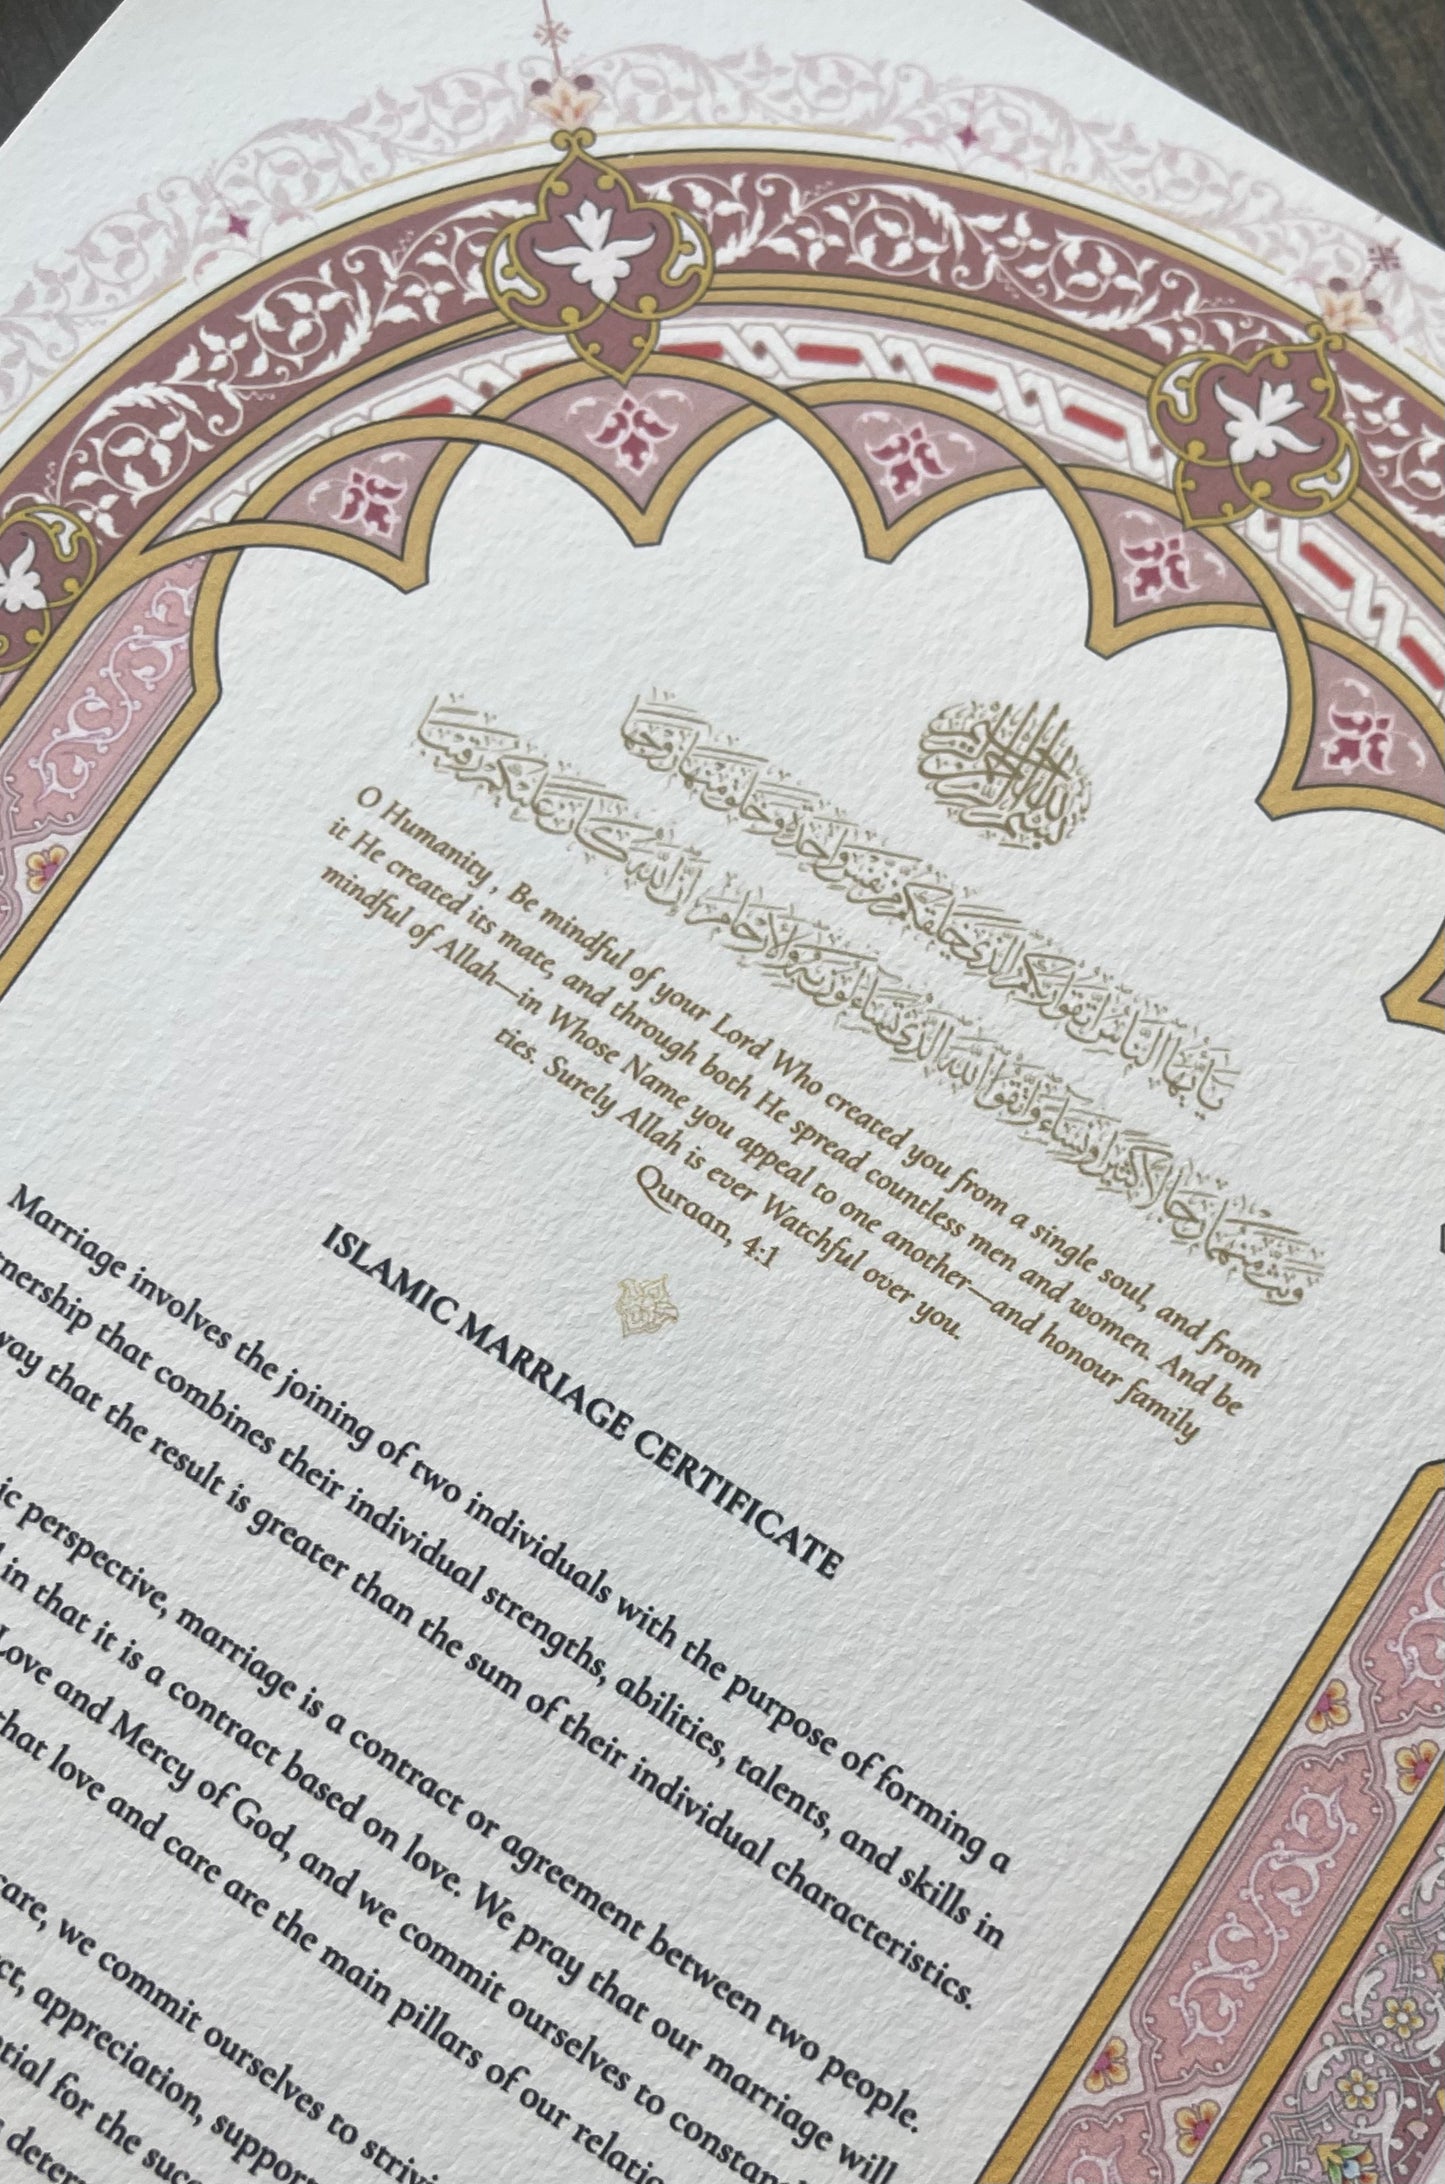 بسم الله الرحمن الرحيم
يَا أَيُّهَا النَّاسُ اتَّقُوا رَبَّكُمُ الَّذِي خَلَقَكُم مِّن نَّفْسٍ وَاحِدَةٍ وَخَلَقَ مِنْهَا زَوْجَهَا
وَبَثَّ مِنْهُمَا رِجَالًا كَثِيرًا وَنِسَاءً وَاتَّقُوا اللَّهَ الَّذِي تَسَاءَلُونَ بِهِ وَالْأَرْحَامَ إِنَّ اللَّهَ كَانَ عَلَيْكُمْ رَقِيبًا
O Humanity , Be mindful of your Lord Who created you from a single soul, and from
it He created its mate, and through both He spread countless men and women. And be
mindful of Allah—in Whose Name you appeal to one another—and honour family
ties. Surely Allah is ever Watchful over you.
Quraan, 4:1
ISLAMIC MARRIAGE CERTIFICATE
Marriage involves the joining of two individuals with the purpose of forming a
that combines their individual strengths, abilities, talents, and skills in
way that the result is greater than the sum of their individual characteristics.
perspective, marriage is a contract or agreement between two people.
in that it is a contract based on love. We pray that our marriage will
Love and Mercy of God, and we commit ourselves to
that love and care are the main pillars of our
care, we commit ourselves to
appreciation,
for the